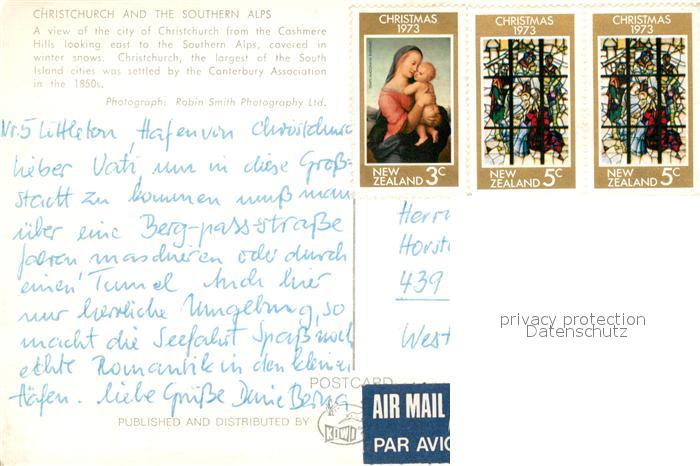 CHRISTCHURCH AND THE SOUTHERN ALPS
A view of the city of Christchurch from the Cashmere
Hills looking east to the Southern Alps, covered in
winter snows. Christchurch, the largest of the South
Island cities was settled by the Canterbury Association
in the 1850s.
Photograph: Robin Smith Photography Ltd.
CHRISTMAS
1973
NEW
ZEALAND 3c
CHRISTMAS
1973
NEW
ZEALAND 5c
CHRISTMAS
1973
NEW
ZEALAND 5c
Nr. 5 Littleton, Hafen von Christchurc
lieber Vati, um in diese Groß-
stadt zu kommen muß man
über eine Berg-pass-straße
oder durch
einen Tunnel Auch hier
nur herrliche Umgebung, so
macht die Seefahrt Spaß noch
echte Romantik in den kleinen
Häfen. liebe Grüße Deine
Herrn
Horst
439
West
privacy protection
Datenschutz
POSTCARD
PUBLISHED AND DISTRIBUTED BY
KIWI
AIR MAIL
PAR AVIO